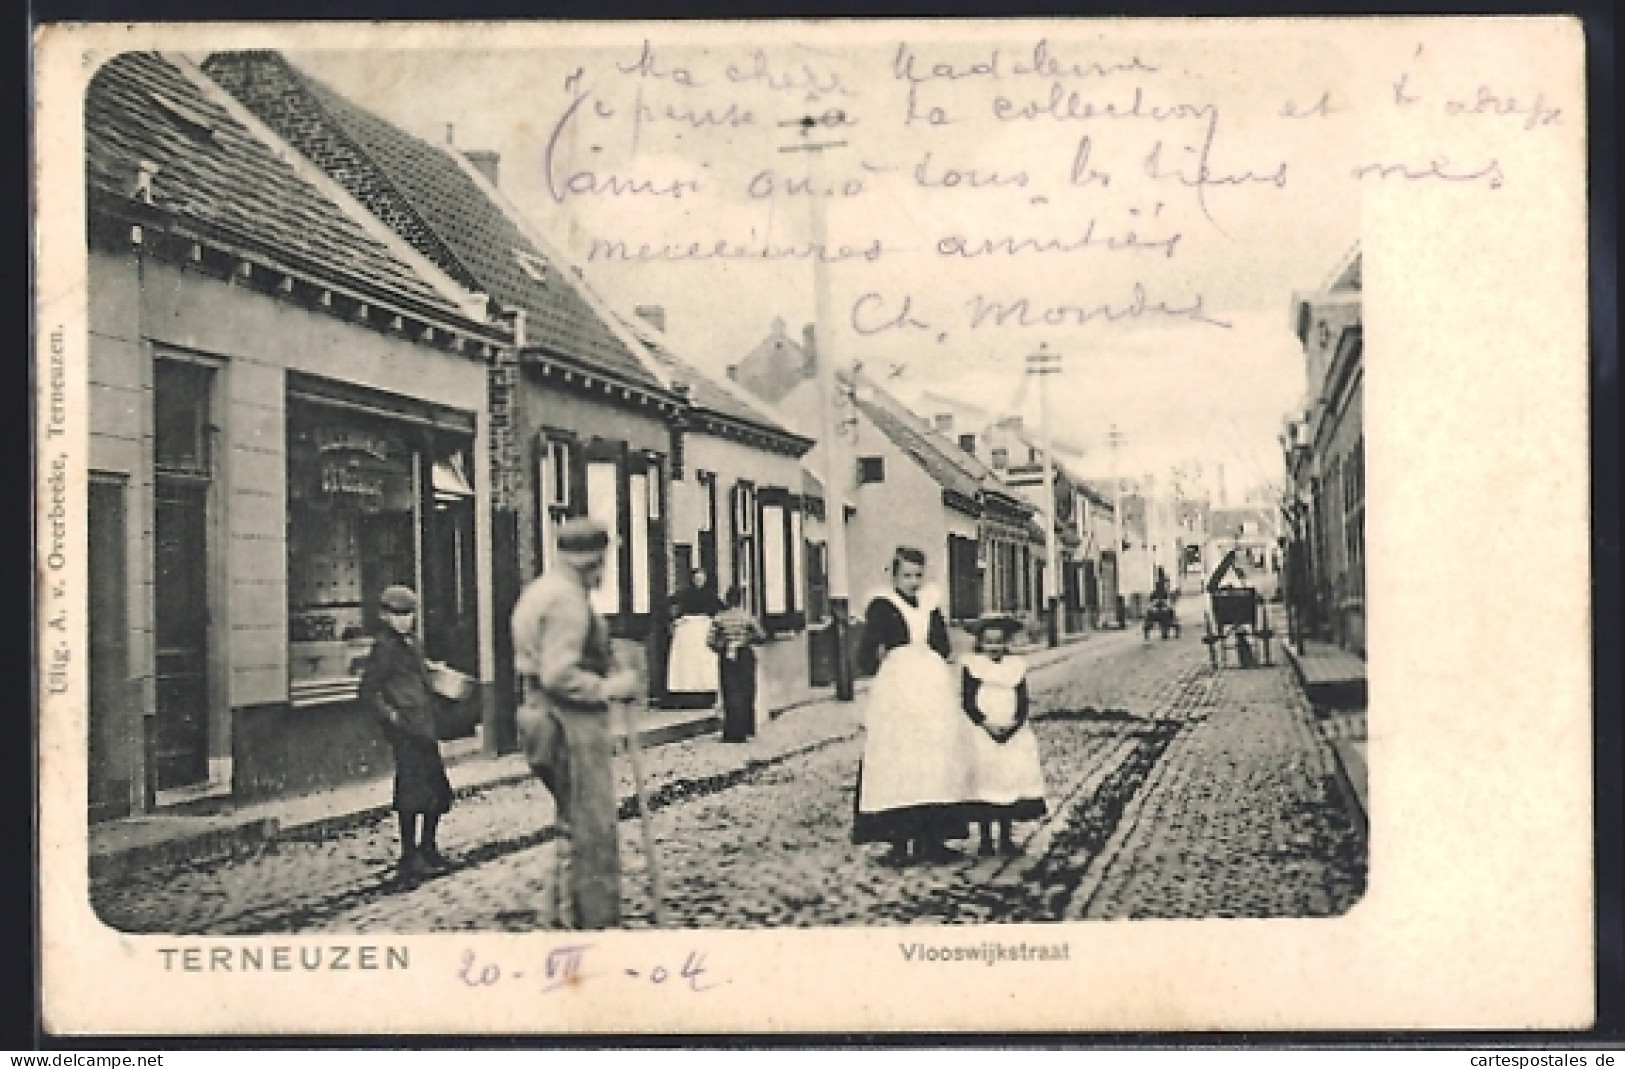 Ma chere Madeleine
Je pense à ta collection et t'adresse
ainsi qu'à tous les tiens mes
meilleures amitiés
Ch.
TERNEUZEN
20-VII-04.
Vlooswijkstraat
Uitg. A. v. Overbeeke, Terneuzen.
cartespostales de